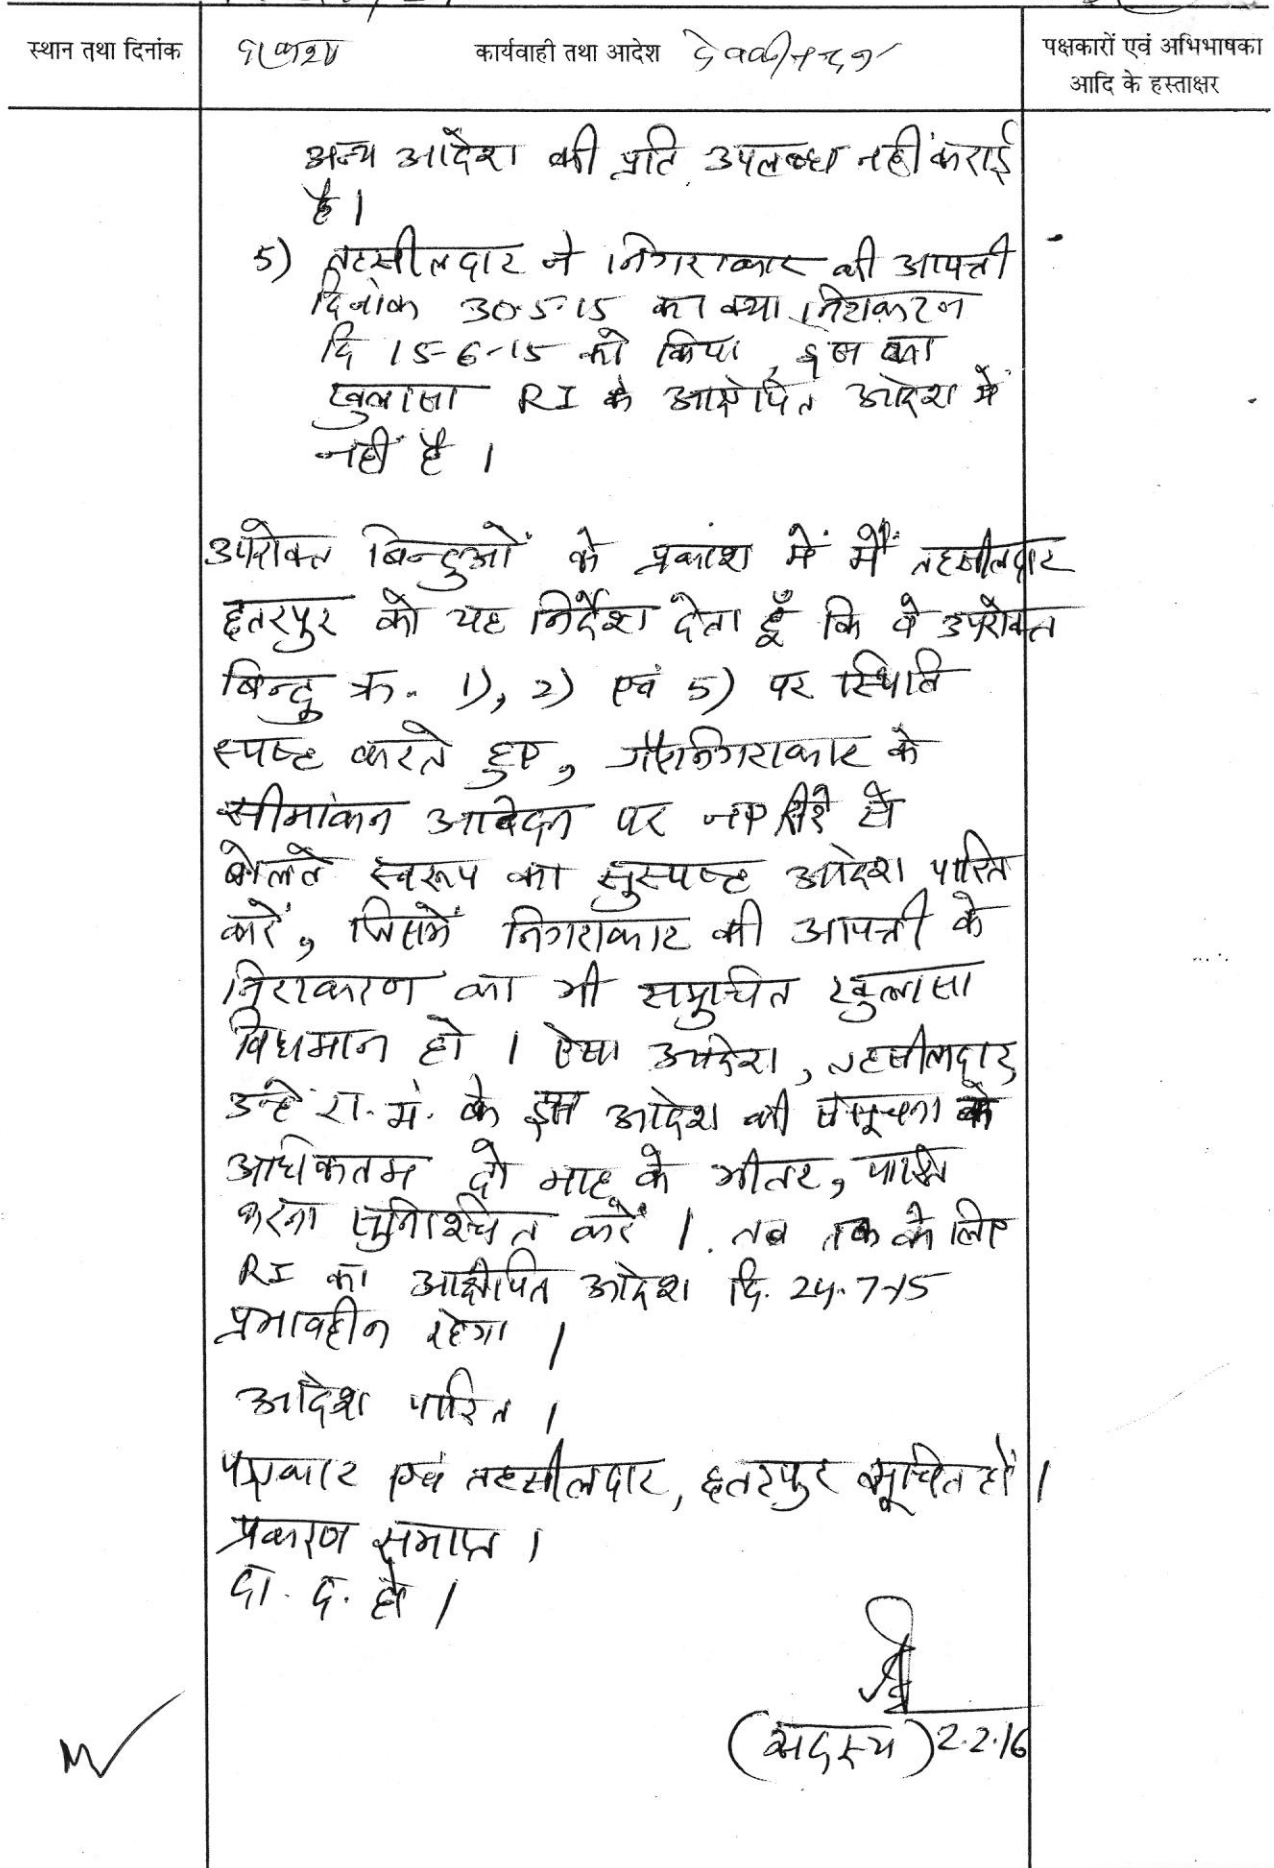 स्थान तथा दिनांक
कार्यवाही तथा आदेश देवकीनन्दन
पक्षकारों एवं अभिभाषका
आदि के हस्ताक्षर
अन्य आदेश की प्रति उपलब्ध नहीं कराई
है।
5) तहसीलदार ने निगराकार की आपत्ती
दिनांक 30.5.15 का क्या निराकरन
दि 15-6-15 को किया, इस का
खुलासा RI के आक्षेपित आदेश में
नहीं है ।
उपरोक्त बिन्दुओं के प्रकाश में मैं तहसीलदार
छतरपुर को यह निर्देश देता हूँ कि वे उपरोक्त
बिन्दु क्र. 1), 2) एवं 5) पर स्थिति
स्पष्ट करते हुए, गैरनिगराकार के
सीमांकन आवेदन पर नए सिरे से
बोलते स्वरूप का सुस्पष्ट आदेश पारित
करें, जिसमें निगराकार की आपत्ती के
निराकरण का भी समुचित खुलासा
विधमान हो । ऐसा आदेश, तहसीलदार
उन्हें रा.मं. के इस आदेश की संसूचना के
अधिकतम दो माह के भीतर, पारित
करना सुनिश्चित करें । तब तक के लिए
RI का आक्षेपित आदेश दि. 24.7.15
प्रभावहीन रहेगा ।
आदेश पारित ।
पक्षकार एवं तहसीलदार, छतरपुर सूचित हों ।
प्रकरण समाप्त ।
दा. द. हो ।
(सदस्य) 2.2.16